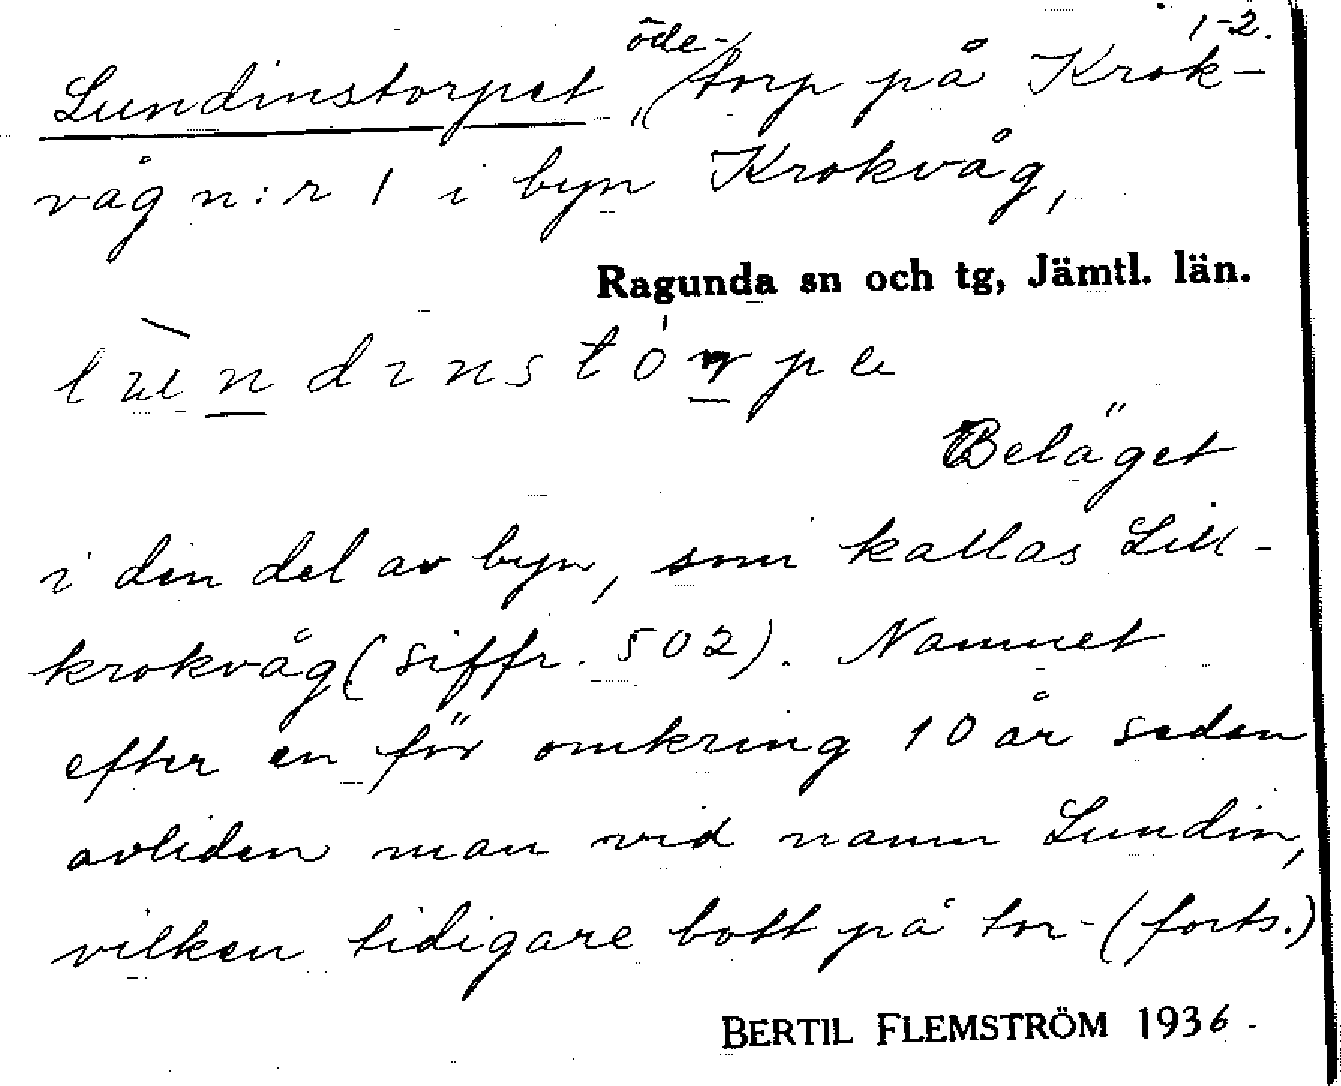 1-2.
Lundinstorpet, öde-torp på Krok-
våg n:r 1 i byn Krokvåg,
Ragunda sn och tg, Jämtl. län.
lùndınstórpe
Beläget
i den del av byn, som kallas Lill-
krokvåg (siffr. 502). Namnet
efter en för omkring 10 år sedan
avliden man vid namn Lundin,
vilken tidigare bott på tor- (forts.)
BERTIL FLEMSTRÖM 1936.